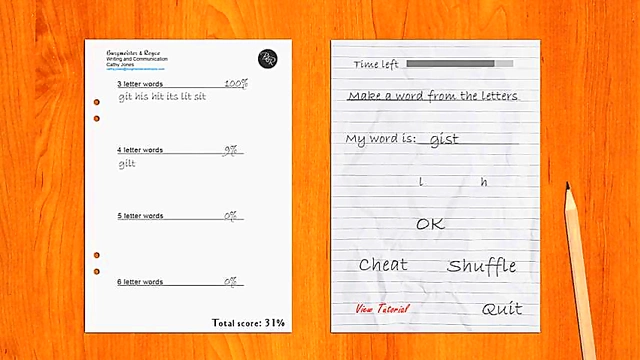 Gurgmeister & Royce
Writing and Communication
Cathy Jones
3 letter words 100%
git his hit its lit sit
4 letter words 9%
gilt
5 letter words 0%
6 letter words 0%
Total score: 31%
Time left
Make a word from the letters
My word is: gist
l h
OK
Cheat Shuffle
View Tutorial Quit